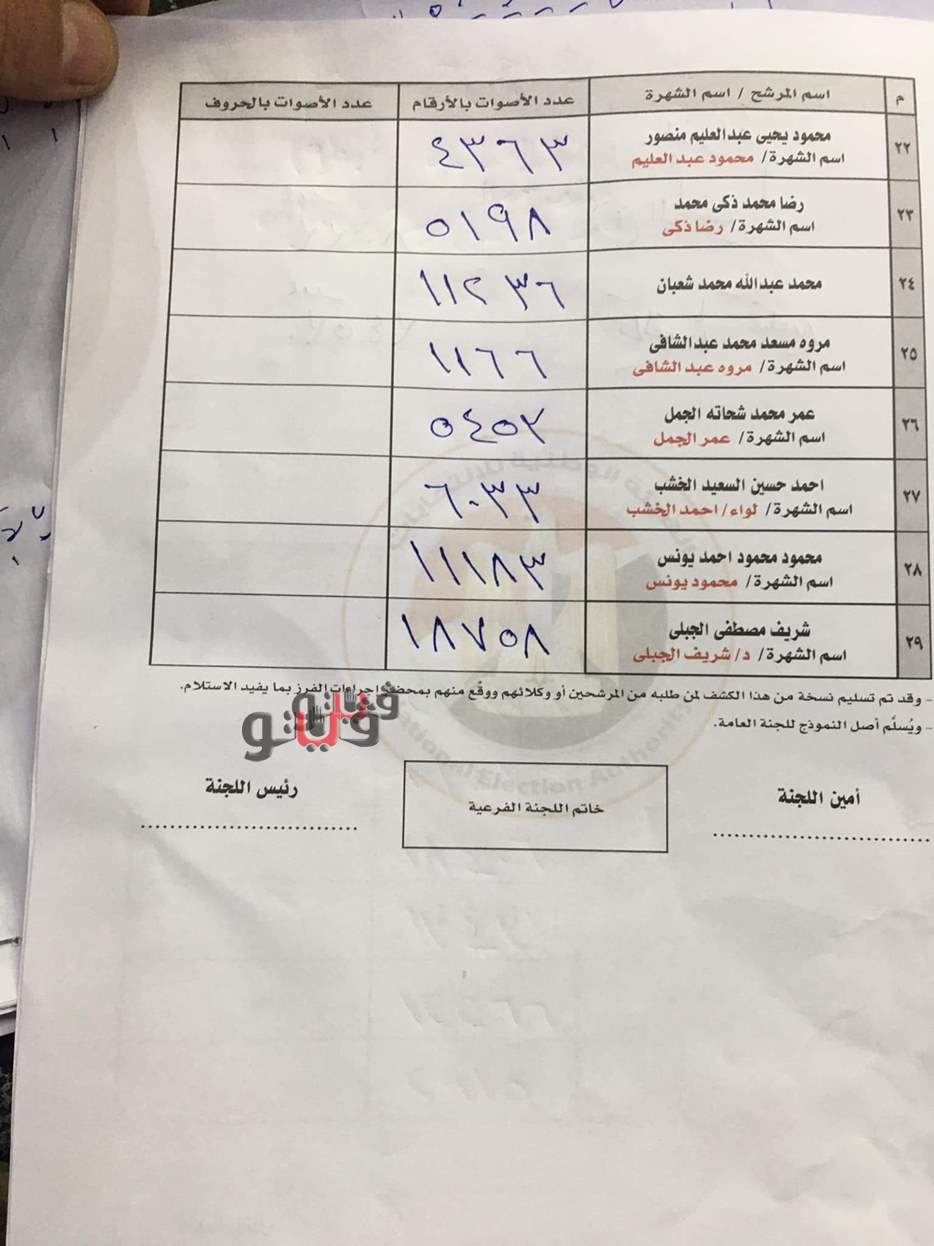 م اسم المرشح / اسم الشهرة عدد الأصوات بالأرقام عدد الأصوات بالحروف
٢٢ محمود يحيى عبدالعليم منصور ٤٣٦٣
اسم الشهرة/ محمود عبد العليم
٢٣ رضا محمد ذكى محمد ٥١٩٨
اسم الشهرة/ رضا ذكى
٢٤ محمد عبدالله محمد شعبان ١١٢٣٦
٢٥ مروه مسعد محمد عبدالشافى ١١٦٦
اسم الشهرة/ مروه عبد الشافى
٢٦ عمر محمد شحاته الجمل ٥٤٥٢
اسم الشهرة/ عمر الجمل
٢٧ احمد حسين السعيد الخشب ٦٠٣٣
اسم الشهرة/ لواء/ احمد الخشب
٢٨ محمود محمود احمد يونس ١١١٨٣
اسم الشهرة/ محمود يونس
٢٩ شريف مصطفى الجبلى ١٨٧٥٨
اسم الشهرة/ د/ شريف الجبلى
- وقد تم تسليم نسخة من هذا الكشف لمن طلبه من المرشحين أو وكلائهم ووقّع منهم بمحضر إجراءات الفرز بما يفيد الاستلام.
- ويُسلَّم أصل النموذج للجنة العامة.
فيتو
أمين اللجنة
خاتم اللجنة الفرعية
رئيس اللجنة
الوطنية للانتخابات
National Election Authority